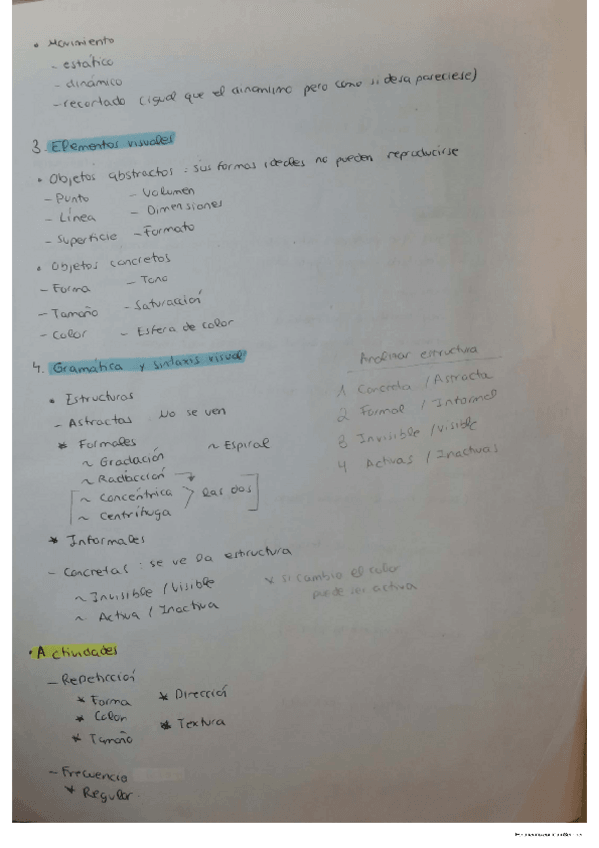 • Movimiento
- estático
- dinámico
- recortado (igual que el dinamismo pero como si desapareciese)
3. Elementos visuales
• Objetos abstractos : sus formas ideales no pueden reproducirse
- Punto - Volumen
- Línea - Dimensiones
- Superficie - Formato
• Objetos concretos
- Forma - Tono
- Tamaño - Saturación
- Color - Esfera de color
4. Gramática y sintaxis visual
• Estructuras
- Astractas . No se ven
* Formales ~ Espiral
~ Gradación
~ Radiacción
~ Concéntrica > las dos
~ Centrífuga
* Informales
- Concretas : se ve la estructura
~ Invisible / Visible
~ Activa / Inactiva
* si cambio el color
puede ser activa
Analizar estructura
1 Concreta / Astracta
2 Formal / Informal
3 Invisible / visible
4 Activas / Inactivas
• Actividades
- Repetición
* Forma * Dirección
* Color
* Textura
* Tamaño
- Frecuencia
* Regular